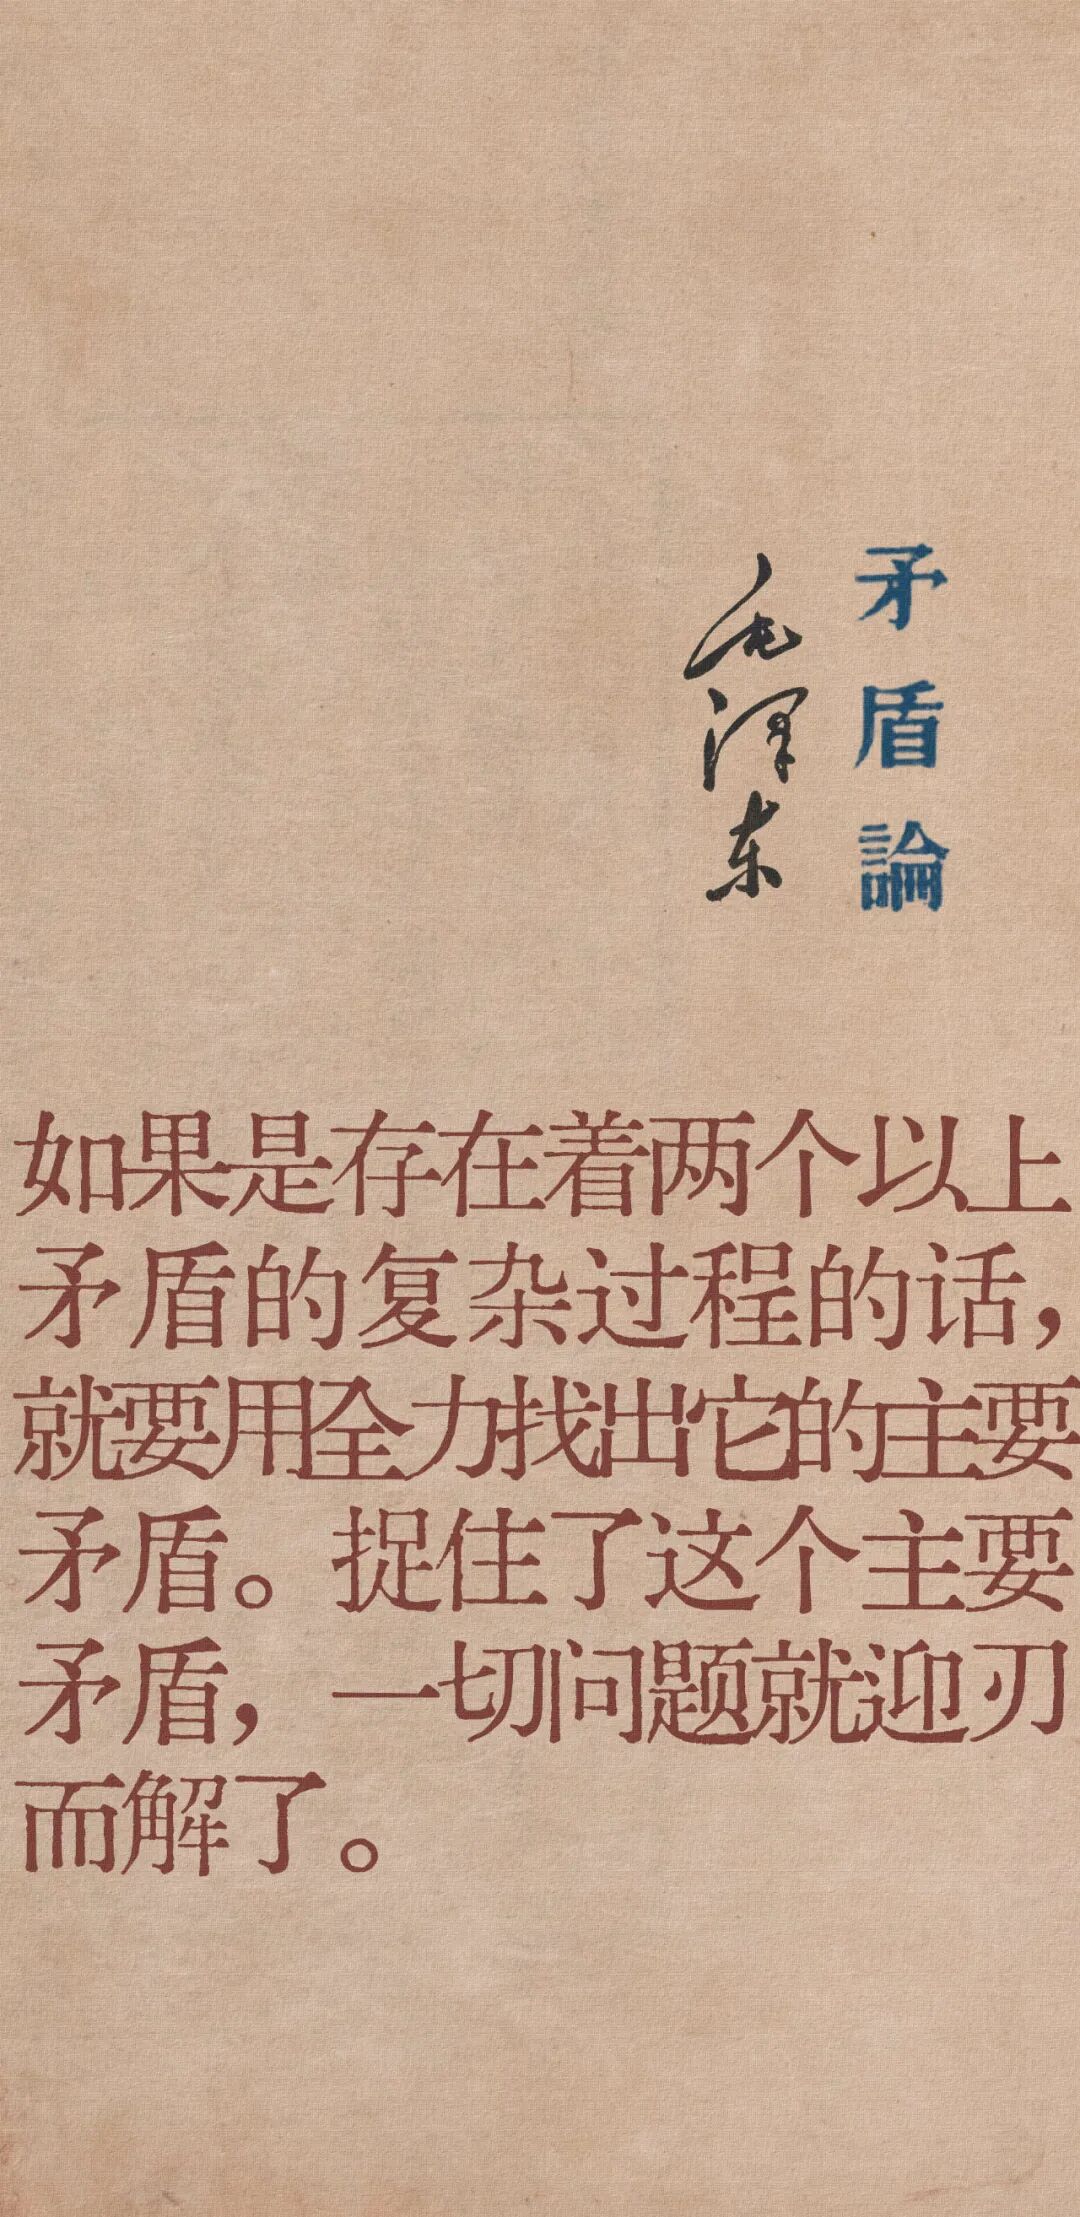 矛盾論
毛泽东
如果是存在着两个以上
矛盾的复杂过程的话，
就要用全力找出它的主要
矛盾。捉住了这个主要
矛盾，一切问题就迎刃
而解了。